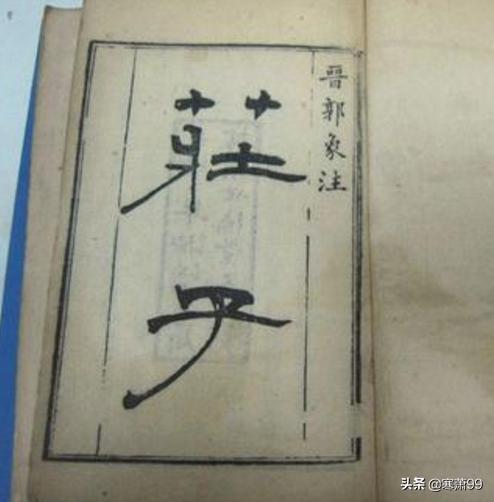 晉郭象注
莊子
头条 @寒萧99